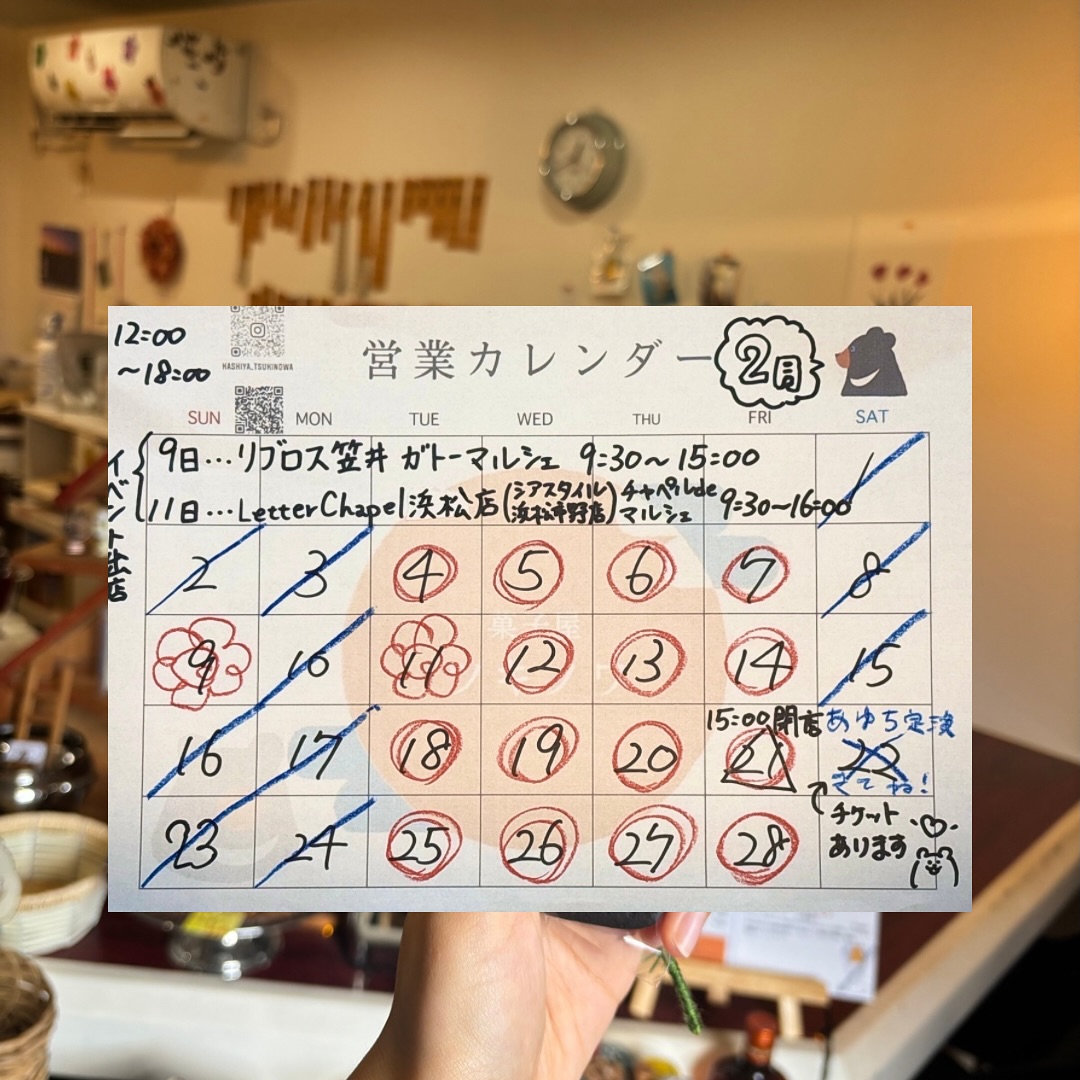 12:00
~18:00
HASHIYA_TSUKINOWA
営業カレンダー
2月
SUN MON TUE WED THU FRI SAT
イベント出店
9日…リブロス笠井 ガトーマルシェ 9:30~15:00
11日…Letter Chapel浜松店(シアスタイル浜松市野店)チャペルdeマルシェ 9:30~16:00
1
2 3 4 5 6 7 8
菓子屋
9 10 11 12 13 14 15
15:00閉店 あゆち定演
16 17 18 19 20 21 22
きてね!
チケット
あります
23 24 25 26 27 28